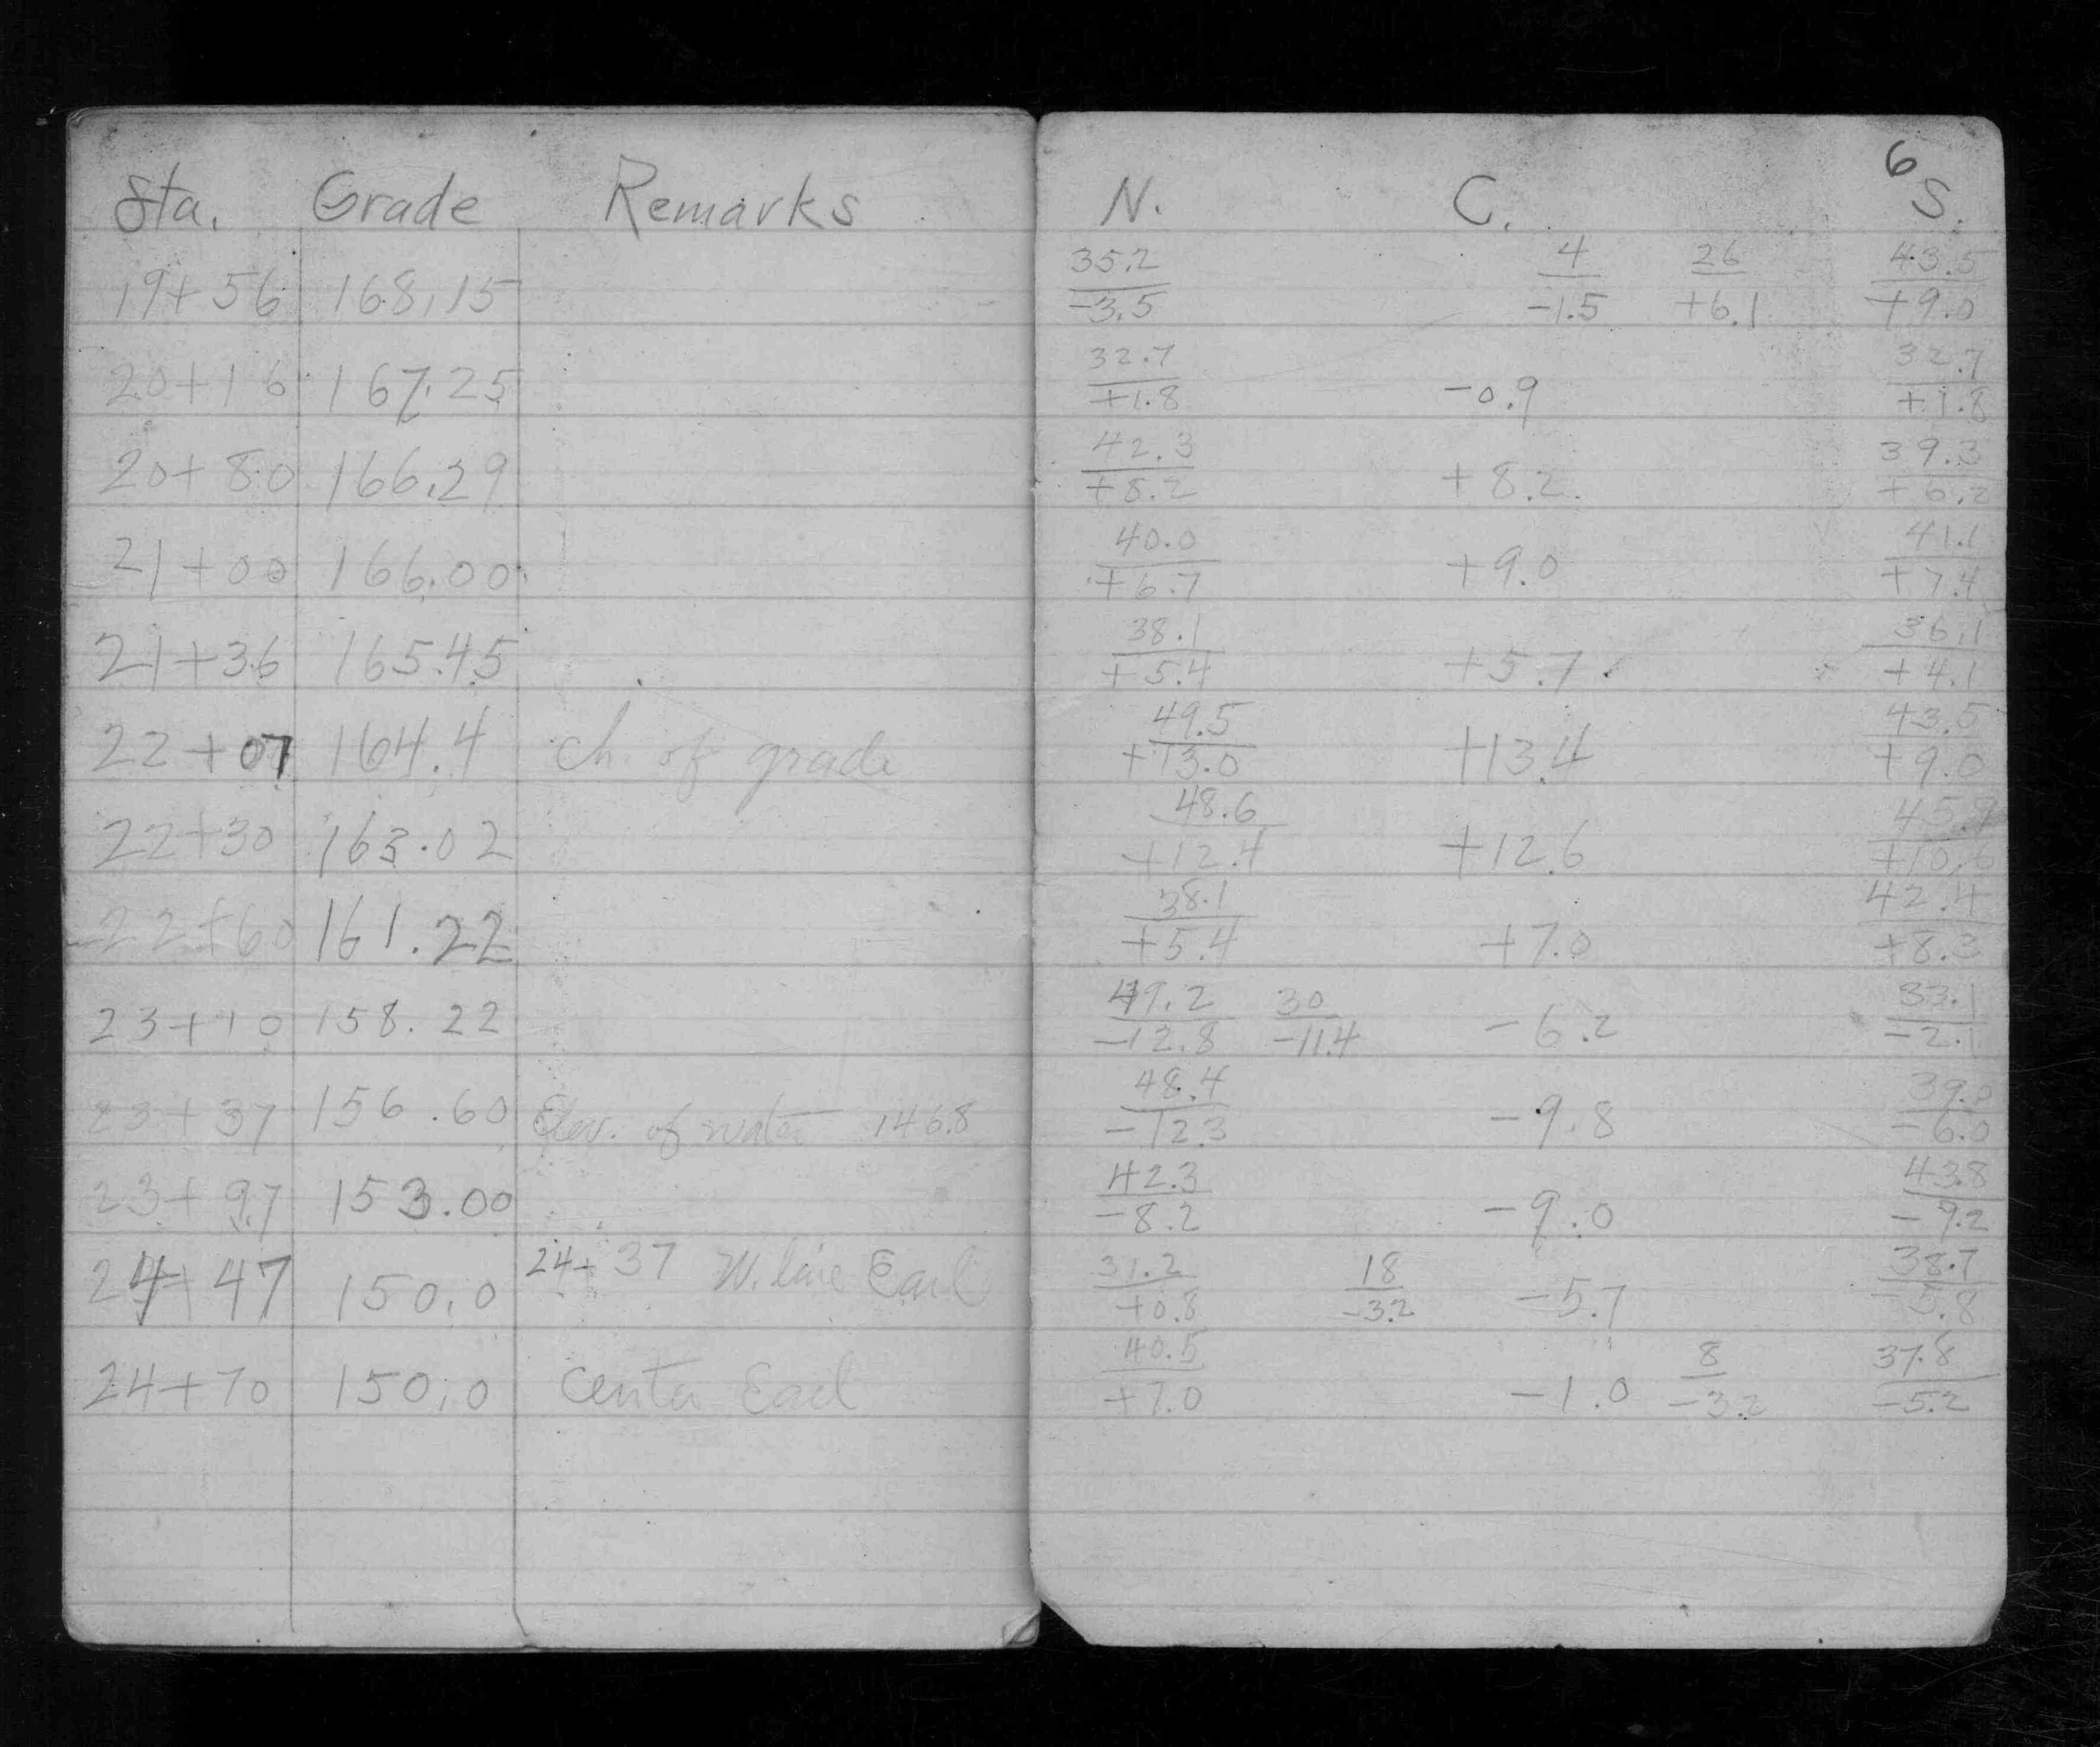 6
Sta. Grade Remarks N. C. S.
19+56 168.15 35.2/-3.5 4/-1.5 26/+6.1 43.5/+9.0
20+16 167.25 32.7/+1.8 -0.9 32.7/+1.8
20+80 166.29 42.3/+8.2 +8.2 39.3/+6.2
21+00 166.00 40.0/+6.7 +9.0 41.1/+7.4
21+36 165.45 38.1/+5.4 +5.7 36.1/+4.1
22+07 164.4 ch. of grade 49.5/+13.0 +13.4 43.5/+9.0
22+30 163.02 48.6/+12.4 +12.6 45.9/+10.6
22+60 161.22 38.1/+5.4 +7.0 42.4/+8.3
23+10 158.22 49.2/-12.8 30/-11.4 -6.2 33.1/-2.1
23+37 156.60 Elev. of water 146.8 48.4/-12.3 -9.8 39.0/-6.0
23+97 153.00 42.3/-8.2 -9.0 43.8/-9.2
24+47 150.0 24+37 W. line Earl 31.2/+0.8 18/-3.2 -5.7 38.7/-5.8
24+70 150.0 Center Earl 40.5/+7.0 -1.0 8/-3.2 37.8/-5.2